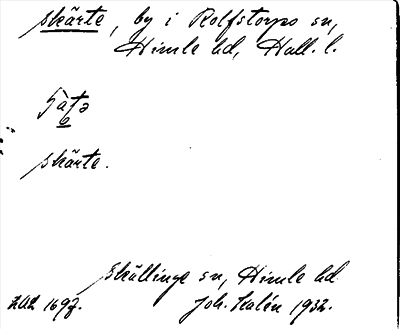 skärte, by i Rolfstorps sn,
Himle hd, Hall. l.
skärte.
skällinge sn, Himle hd
ULL 1697. Joh. Kalén 1932.